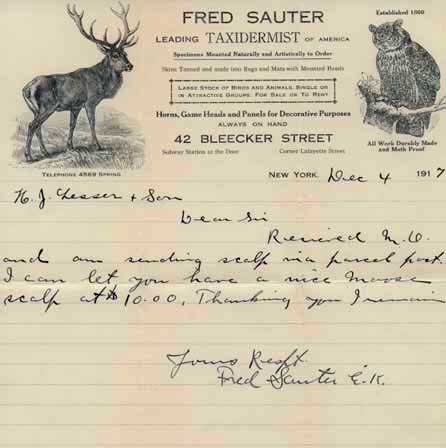 FRED SAUTER
Established 1860
LEADING TAXIDERMIST OF AMERICA
Specimens Mounted Naturally and Artistically to Order
Skins Tanned and made into Rugs and Mats with Mounted Heads
LARGE STOCK OF BIRDS AND ANIMALS, SINGLE OR
IN ATTRACTIVE GROUPS. FOR SALE OR TO RENT
Horns, Game Heads and Panels for Decorative Purposes
ALWAYS ON HAND
42 BLEECKER STREET
Subway Station at the Door Corner Lafayette Street
All Work Durably Made
and Moth Proof
TELEPHONE 4569 SPRING
NEW YORK, Dec 4 1917
H. J. Lesser & Son
Dear Sir
Received M.O.
and am sending scalp via parcel post.
I can let you have a nice Moose
scalp at $10.00. Thanking you I remain
Yours Respt.
Fred Sauter E.K.